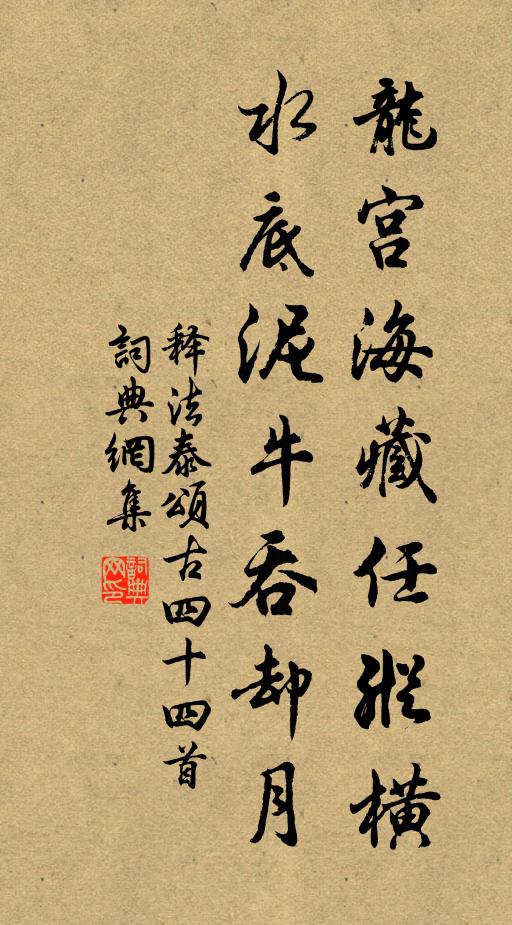 龍宮海藏任縱橫
水底泥牛吞却月
释法泰頌古四十四首
詞典網集
詞典網印